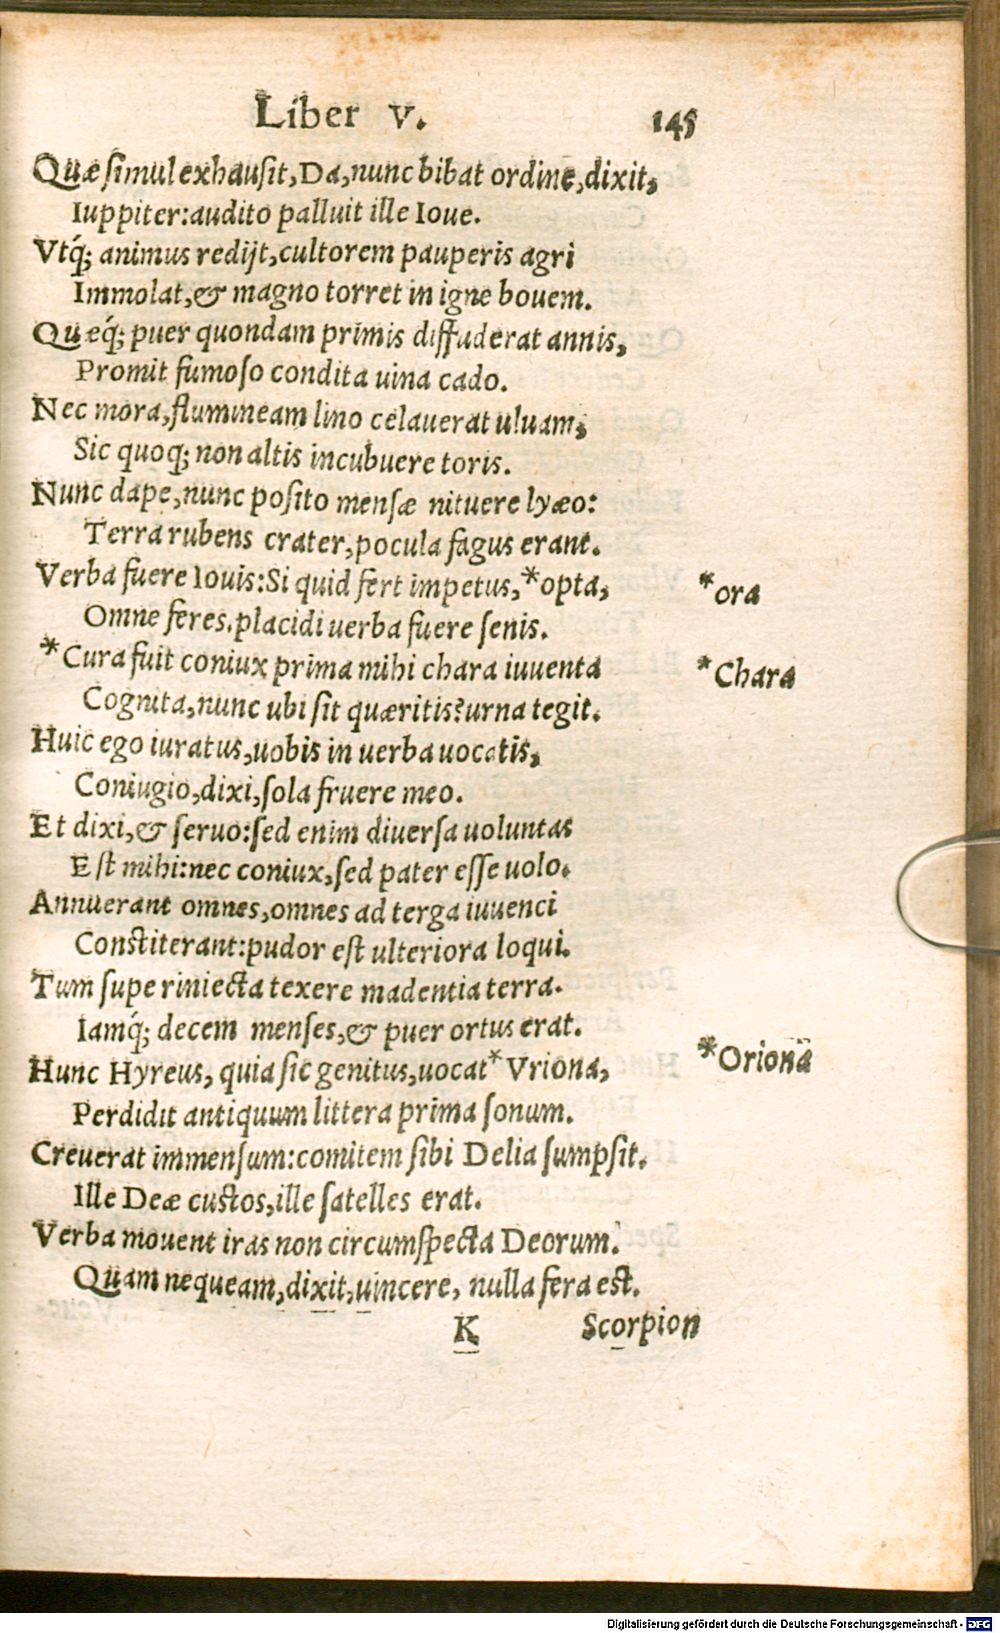 Liber V. 145
Quæ simul exhausit, Da, nunc bibat ordine, dixit,
Iuppiter: audito palluit ille Ioue.
Vtq́; animus redijt, cultorem pauperis agri
Immolat, & magno torret in igne bouem.
Quæq́; puer quondam primis diffuderat annis,
Promit fumoso condita uina cado.
Nec mora, flumineam lino celauerat uluam,
Sic quoq; non altis incubuere toris.
Nunc dape, nunc posito mensæ nituere lyæo:
Terra rubens crater, pocula fagus erant.
Verba fuere Iouis: Si quid fert impetus, *opta, *ora
Omne feres. placidi uerba fuere senis.
*Cura fuit coniux prima mihi chara iuuenta *Chara
Cognita, nunc ubi sit quæritis? urna tegit.
Huic ego iuratus, uobis in uerba uocatis,
Coniugio, dixi, sola fruere meo.
Et dixi, & seruo: sed enim diuersa uoluntas
Est mihi: nec coniux, sed pater esse uolo.
Annuerant omnes, omnes ad terga iuuenci
Constiterant: pudor est ulteriora loqui.
Tum superiniecta texere madentia terra.
Iamq́; decem menses, & puer ortus erat.
Hunc Hyreus, quia sic genitus, uocat *Vriona, *Oriona
Perdidit antiquum littera prima sonum.
Creuerat immensum: comitem sibi Delia sumpsit.
Ille Deæ custos, ille satelles erat.
Verba mouent iras non circumspecta Deorum.
Quam nequeam, dixit, uincere, nulla fera est.
K Scorpion
Digitalisierung gefördert durch die Deutsche Forschungsgemeinschaft - DFG